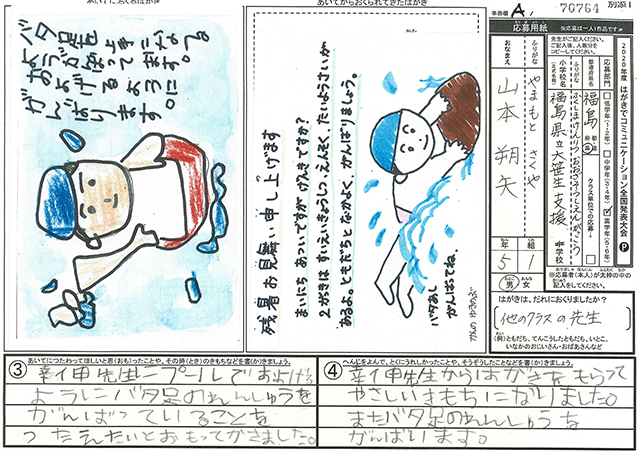 事務欄 A 70764 別添1
あいてからおくられてきたはがき
2020年度 はがきでコミュニケーション全国発表大会 P
応募用紙 ※応募は一人1作品です
先生がご記入ください。
ご記入後、人数分を
コピーしてください。
応募部門
低学年(1・2年)
中学年(3・4年)
高学年(5・6年)
都道府県名
福島
都道府県
クラス単位での応募
小学校名
(正式名称)
福島県立大笹生支援
学校
ふりがな
やまもと さくや
おなまえ
山本 朔矢
5年
1組
男 女
※応募者(本人)が太枠の中の
記入をしてください。
はがきは、だれにおくりましたか?
他のクラスの先生
(例)ともだち、てんこうしたともだち、いとこ、
いなかのおじいさん・おばあさんなど
バタ足も上手になって
およげるように
がんばります。
残暑お見舞い申し上げます
まいにち あついですが げんきですか?
2がっきは すいえいきょうしつ、えんそく、たいようさいが
あるよ。ともだちと なかよく、がんばりましょう。
バタあし
がんばってね。
③ あいてにつたわってほしいと思(おも)ったことや、その時(とき)のきもちなどを書(か)きましょう。
先生にプールでおよげる
ようにバタ足のれんしゅうを
がんばっていることを
つたえたいとおもってかきました。
④ へんじをよんで、とくにうれしかったことや、そうぞうしたことなどを書(か)きましょう。
先生からはがきをもらって
やさしいきもちになりました。
またバタ足のれんしゅうを
がんばります。